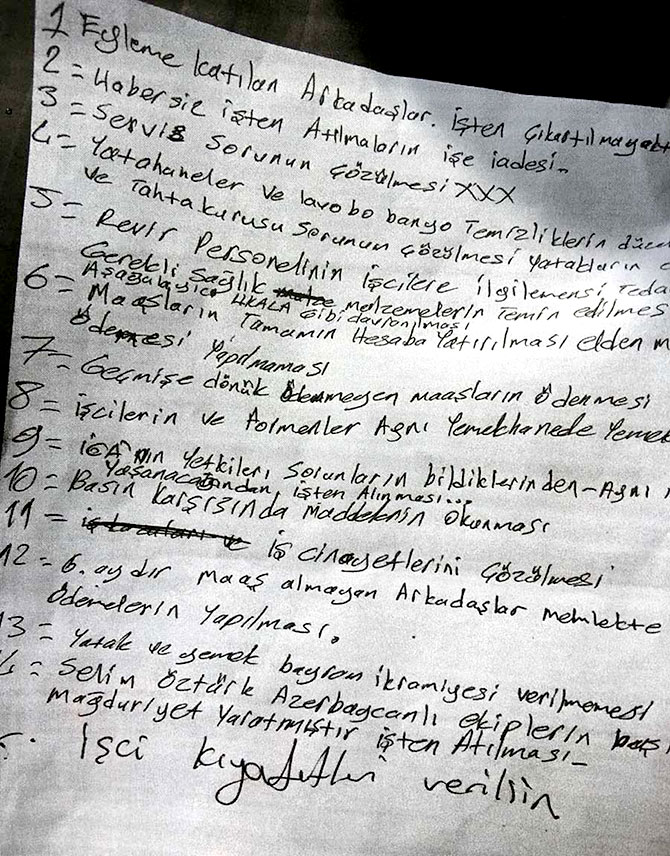 1 Eyleme katılan Arkadaşlar. işten çıkartılmayacak
2 = Habersiz işten Atılmaların işe iadesi.
3 = Servis Sorunun Çözülmesi XXX
4 = Yatahaneler ve lavobo banyo Temizliklerin
ve Tahtakurusu Sorunun Çözülmesi yatakların
5 = Revir Personelinin işcilere ilgilemensi Teda
Gerekli Sağlık melzemelerin Temin edilmes
Aşağalayıcı UKALA Gibi davranılması
6 = Maaşların Tamamın Hesaba Yatırılması elden
Ödemesi Yapılmaması
7 = Geçmişe dönük Ödenmeyen maaşların Ödenmesi
8 = işcilerin ve Formenler Aynı Yemekhanede Yemek
9 = iGA'nın Yetkileri Sorunların bildiklerinden - Aynı
Yaşanacağından işten Alınması...
10 = Basın karşısında Maddelerin Okunması
11 = iş cinayetlerini Çözülmesi
12 = 6. aydır maaş almayan Arkadaşlar memlekte
Ödemelerin Yapılması.
13 = Yatak ve yemek bayram ikramiyesi verilmemesi
Selim Öztürk Azerbaycanlı ekiplerin
mağduriyet Yaratmıştır işten Atılması -
işci kıyafetleri verilsin